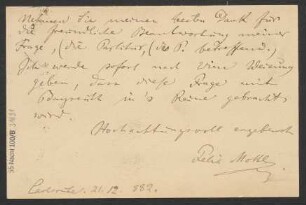 Nehmen Sie meinen besten Dank für
die freundliche Beantwortung meiner
Frage, (die Partitur, (des P. betreffend.)
Ich werde sofort nach Wien Weisung
geben, dass diese Frage mit
in's Reine gebracht
wird.
Hochachtungsvoll ergebenst
Felix Mottl
21.12. 882.